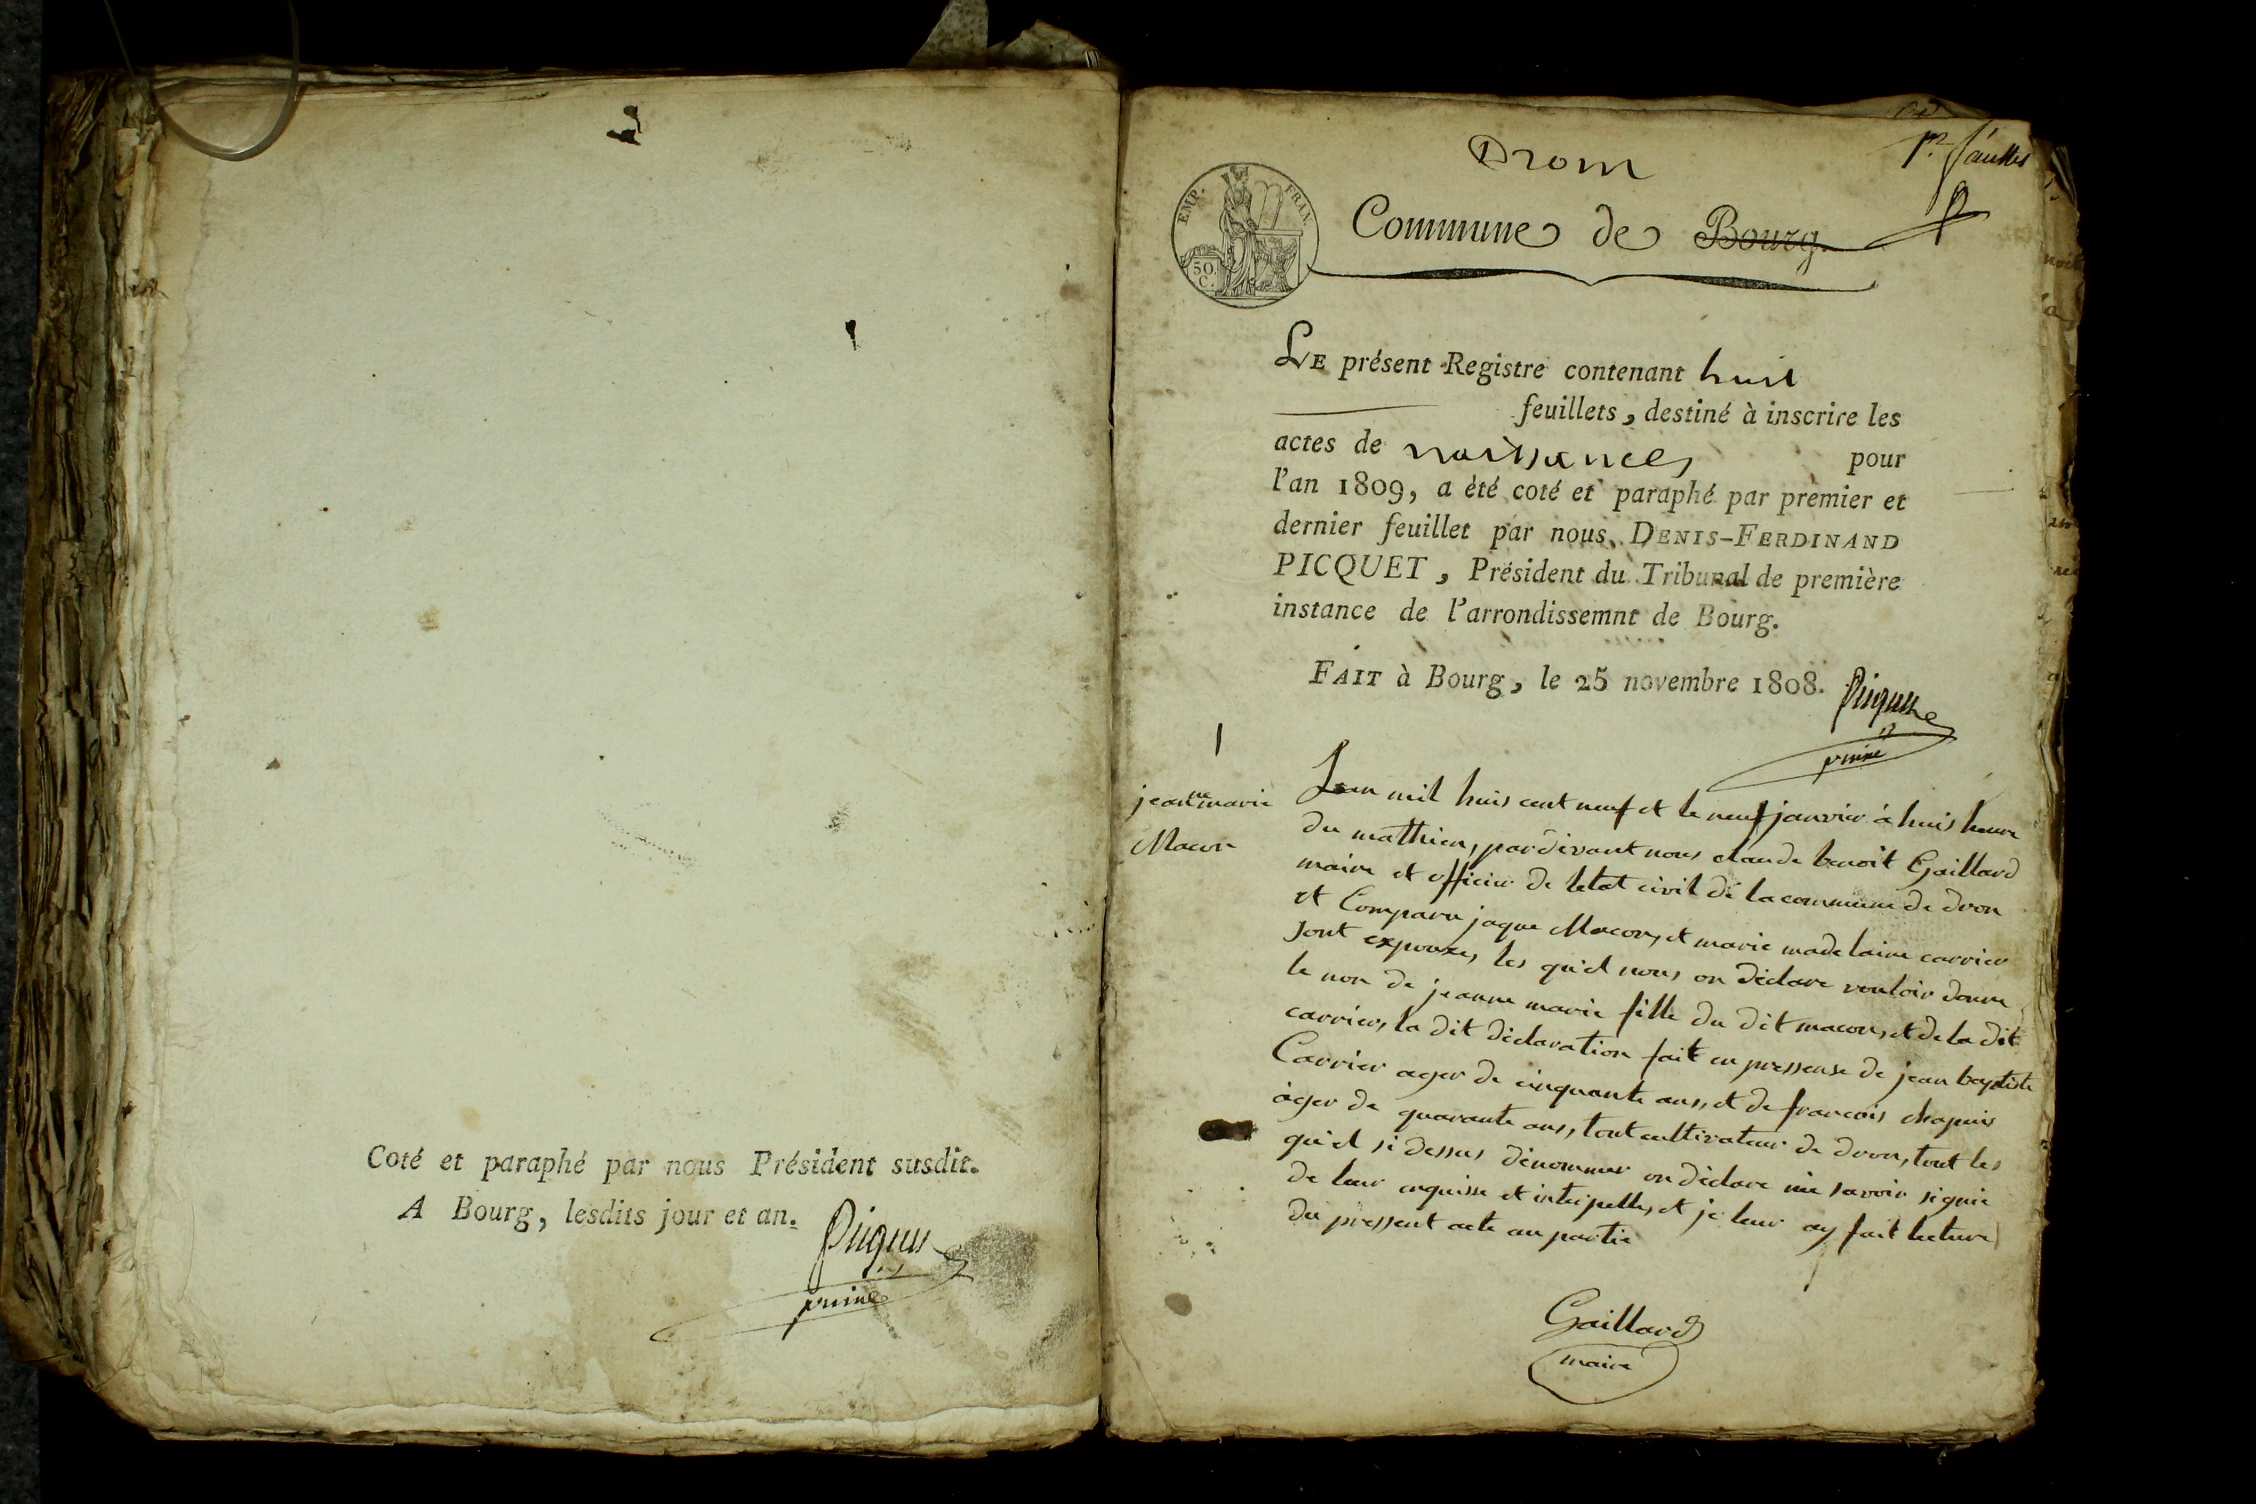 Coté et paraphé par nous Président susdit.
A Bourg, lesdits jour et an.
Picquet
Drom
1.er feuillet
EMP. FRAN.
50 C.
Commune de Bourg.
LE présent Registre contenant huit
feuillets, destiné à inscrire les
actes de naissances pour
l'an 1809, a été coté et paraphé par premier et
dernier feuillet par nous, DENIS-FERDINAND
PICQUET, Président du Tribunal de première
instance de l'arrondissemnt de Bourg.
FAIT à Bourg, le 25 novembre 1808.
Picquet
1
jeanne marie
Macon
Lan mil huis cent neuf et le neuf janvier á huis heure
du mathien, pardivant nous claude benoit Gaillard
maire et officier de letat civil de la commune de dron
et Comparu jaque Macon, et marie madelaine carrier
sont expouxes, les qu'el nous on déclare vouloir donne
le non de jeanne marie fille du dit macon, et de la dit
carrier, la dit déclaration fait en pressense de jean baptiste
Carrier ager de cinquante ans, et de francois chapuis
áger de quarante ans, tout cultivateur de dron, tout les
qu'el si dessus dénommer on déclare nie savoir signie
de leur enquisse et interpelle, et je leur ay fait lecture
du pressent acte au partie
Gaillard
maire